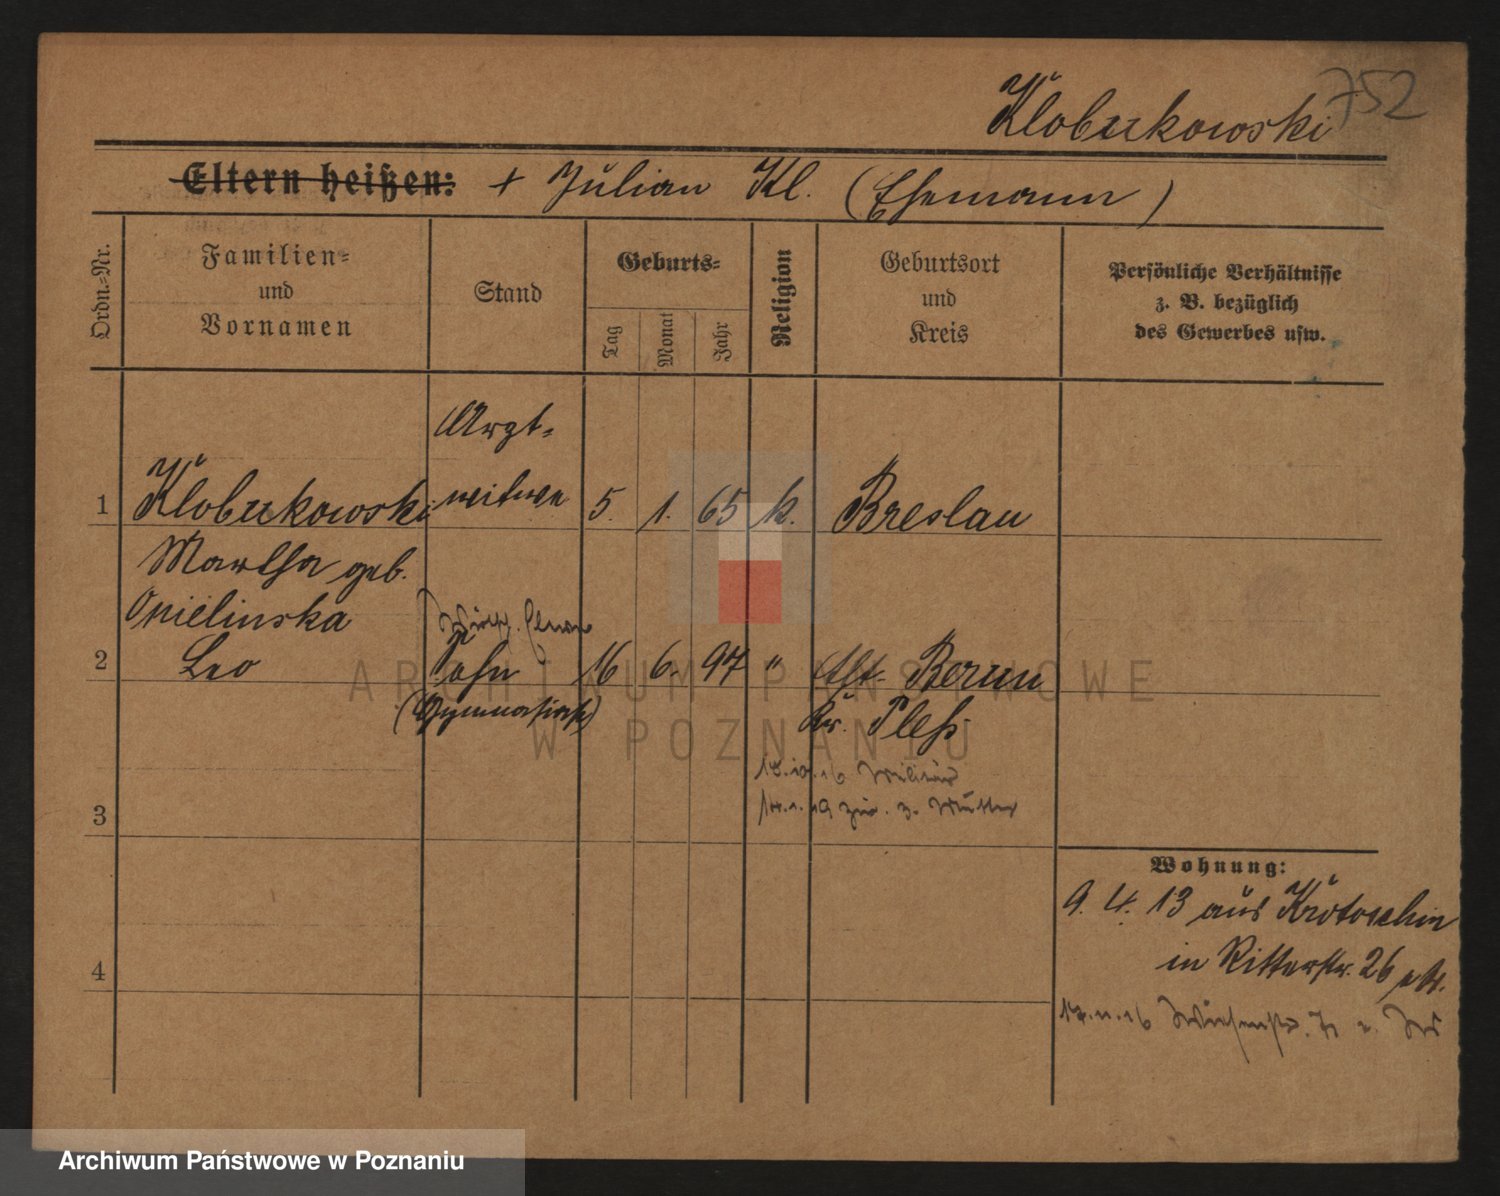 752
Klobukowski
Eltern heißen: + Julian Kl. (Ehemann)
Ordn.=Nr.
Familien=
und
Vornamen
Stand
Geburts=
Tag
Monat
Jahr
Religion
Geburtsort
und
Kreis
Persönliche Verhältnisse
z. B. bezüglich
des Gewerbes usw.
Arzt=
1 Klobukowski witwe 5. 1. 65 k. Breslau
Martha geb.
Opielinska
2 Leo Sohn 16 6. 97 " Alt- Berun
(Gymnasiast) Kr. Pleß
18.10.16 Militär
14.1.19 zur. z. Mutter
3
Wohnung:
9. 4. 13 aus Krotoschin
in Ritterstr. 26
4
17.11.16
ARCHIWUM PAŃSTWOWE
W POZNANIU
Archiwum Państwowe w Poznaniu